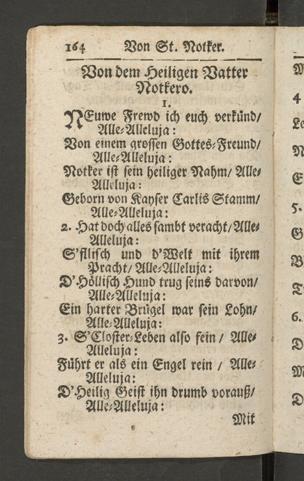 164 Von St. Notker.
Von dem Heiligen Vatter
Notkero.
1.
NEuwe Frewd ich euch verkünd/
Alle-Alleluja:
Von einem grossen Gottes-Freund/
Alle-Alleluja:
Notker ist sein heiliger Nahm/ Alle-
Alleluja:
Geborn von Kayser Carlis Stamm/
Alle-Alleluja:
2. Hat doch alles sambt veracht/Alle-
Alleluja:
S'flisch und d'Welt mit ihrem
Pracht/ Alle-Alleluja:
D'Höllisch Hund trug seins darvon/
Alle-Alleluja:
Ein harter Brügel war sein Lohn/
Alle-Alleluja:
3. S'Closter-Leben also fein / Alle-
Alleluja:
Führt er als ein Engel rein / Alle-
Alleluja:
D'Heilig Geist ihn drumb vorauß/
Alle-Alleluja:
Mit